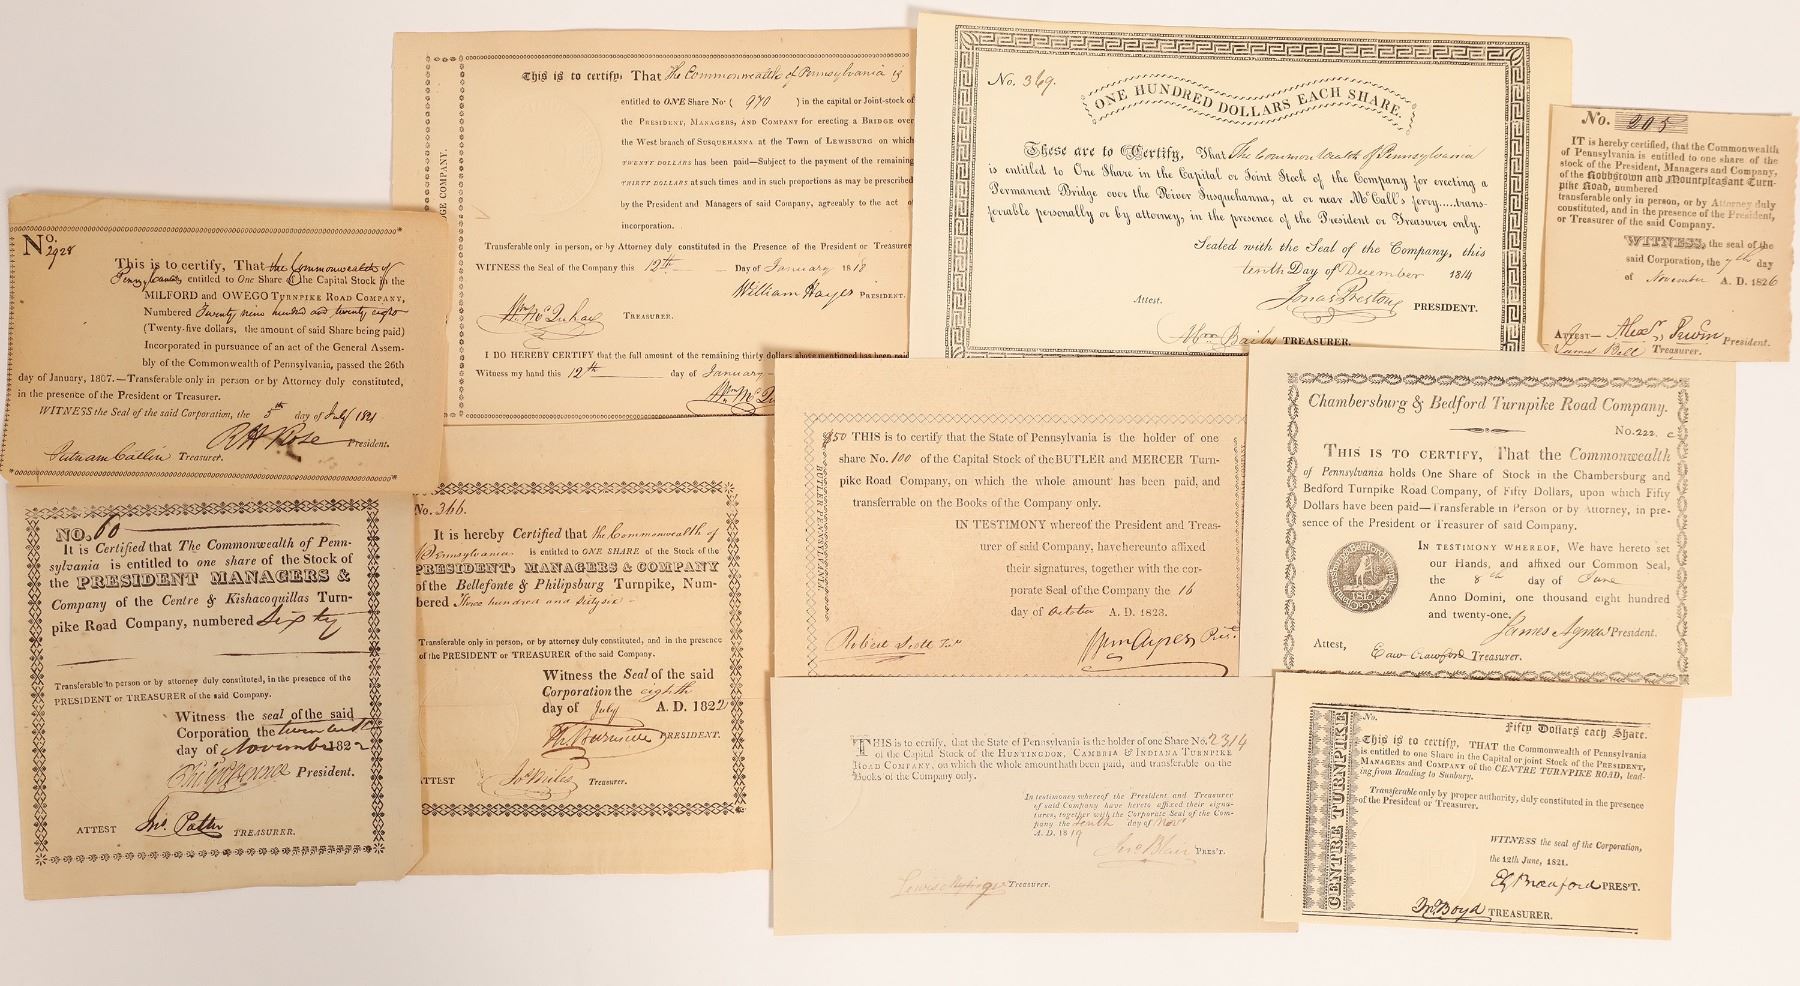 No.
2928
This is to certify, That the Commonwealth of
Pennsylvania entitled to One Share of the Capital Stock in the
MILFORD and OWEGO TURNPIKE ROAD COMPANY,
Numbered Twenty nine hundred and twenty eight
(Twenty-five dollars, the amount of said Share being paid)
Incorporated in pursuance of an act of the General Assem-
bly of the Commonwealth of Pennsylvania, passed the 26th
day of January, 1807.—Transferable only in person or by Attorney duly constituted,
in the presence of the President or Treasurer.
WITNESS the Seal of the said Corporation, the 5th day of July 1821
R H Rose President.
Putnam Catlin Treasurer.
GE COMPANY.
This is to certify, That The Commonwealth of Pennsylvania is
entitled to ONE Share No. ( 970 ) in the capital or Joint-stock of
the PRESIDENT, MANAGERS, AND COMPANY for erecting a BRIDGE over
the West branch of SUSQUEHANNA at the Town of LEWISBURG on which
TWENTY DOLLARS has been paid—Subject to the payment of the remaining
THIRTY DOLLARS at such times and in such proportions as may be prescribed
by the President and Managers of said Company, agreeably to the act of
incorporation.
Transferable only in person, or by Attorney duly constituted in the Presence of the President or Treasurer
WITNESS the Seal of the Company this 12th Day of January 1818
William Hayes PRESIDENT.
TREASURER.
I DO HEREBY CERTIFY that the full amount of the remaining thirty dollars above mentioned has been paid
Witness my hand this 12th day of January
No. 369.
ONE HUNDRED DOLLARS EACH SHARE.
These are to Certify, That The Commonwealth of Pennsylvania
is entitled to One Share in the Capital or Joint Stock of the Company for erecting a
Permanent Bridge over the River Susquehanna, at or near McCall's ferry.....trans-
ferable personally or by attorney, in the presence of the President or Treasurer only.
Sealed with the Seal of the Company, this
tenth Day of December 1814
Attest.
Jonas Preston PRESIDENT.
Abm Baily TREASURER.
No. 205
IT is hereby certified, that the Commonwealth
of Pennsylvania is entitled to one share of the
stock of the President, Managers and Company,
of the Robbstown and Mountpleasant Turn-
pike Road, numbered
transferable only in person, or by Attorney duly
constituted, and in the presence of the President,
or Treasurer of the said Company.
WITNESS, the seal of the
said Corporation, the 7th day
of November A. D. 1826
ATTEST— Alexr Irwin President.
James Bell Treasurer.
NO. 60
It is Certified that The Commonwealth of Penn-
sylvania is entitled to one share of the Stock of
the PRESIDENT MANAGERS &
Company of the Centre & Kishacoquillas Turn-
pike Road Company, numbered Sixty
Transferable in person or by attorney duly constituted, in the presence of the
PRESIDENT or TREASURER of the said Company.
Witness the seal of the said
Corporation the
day of November 1822
President.
ATTEST Jno. Potter TREASURER.
No. 366.
It is hereby Certified that the Commonwealth of
Pennsylvania is entitled to ONE SHARE of the Stock of the
PRESIDENT, MANAGERS & COMPANY
of the Bellefonte & Philipsburg Turnpike, Num-
bered Three hundred and sixty six
Transferable only in person, or by attorney duly constituted, and in the presence
of the PRESIDENT or TREASURER of the said Company.
Witness the Seal of the said
Corporation the eighth
day of July A. D. 1822
PRESIDENT.
ATTEST
Treasurer.
BUTLER PENNSYLVANIA
$50 THIS is to certify that the State of Pennsylvania is the holder of one
share No. 100 of the Capital Stock of the BUTLER and MERCER Turn-
pike Road Company, on which the whole amount has been paid, and
transferrable on the Books of the Company only.
IN TESTIMONY whereof the President and Treas-
urer of said Company, have hereunto affixed
their signatures, together with the cor-
porate Seal of the Company the 16
day of October A. D. 1823.
Robert Scott Tr
Wm Ayres Prest.
Chambersburg & Bedford Turnpike Road Company.
No. 222. c
THIS IS TO CERTIFY, That the Commonwealth
of Pennsylvania holds One Share of Stock in the Chambersburg and
Bedford Turnpike Road Company, of Fifty Dollars, upon which Fifty
Dollars have been paid—Transferable in Person or by Attorney, in pre-
sence of the President or Treasurer of said Company.
IN TESTIMONY WHEREOF, We have hereto set
our Hands, and affixed our Common Seal,
the 8th day of June
Anno Domini, one thousand eight hundred
and twenty-one.
1815
James Agnew President.
Attest,
Edw Crawford Treasurer.
THIS is to certify, that the State of Pennsylvania is the holder of one Share No. 2314
of the Capital Stock of the HUNTINGDON, CAMBRIA & INDIANA TURNPIKE
ROAD COMPANY, on which the whole amount hath been paid, and transferable on the
Books of the Company only.
In testimony whereof the President and Treasurer
of said Company have hereto affixed their signa-
tures, together with the Corporate Seal of the Com-
pany the tenth day of Novr
A. D. 1819
Jno. Blair PRES'T.
Treasurer.
CENTRE TURNPIKE
No.
Fifty Dollars each Share.
This is to certify, THAT the Commonwealth of Pennsylvania
is entitled to one Share in the Capital or joint Stock of the PRESIDENT,
MANAGERS and COMPANY of the CENTRE TURNPIKE ROAD, lead-
ing from Reading to Sunbury.
Transferable only by proper authority, duly constituted in the presence
of the President or Treasurer.
WITNESS the seal of the Corporation,
the 12th June, 1821.
PRES'T.
Jno Boyd TREASURER.